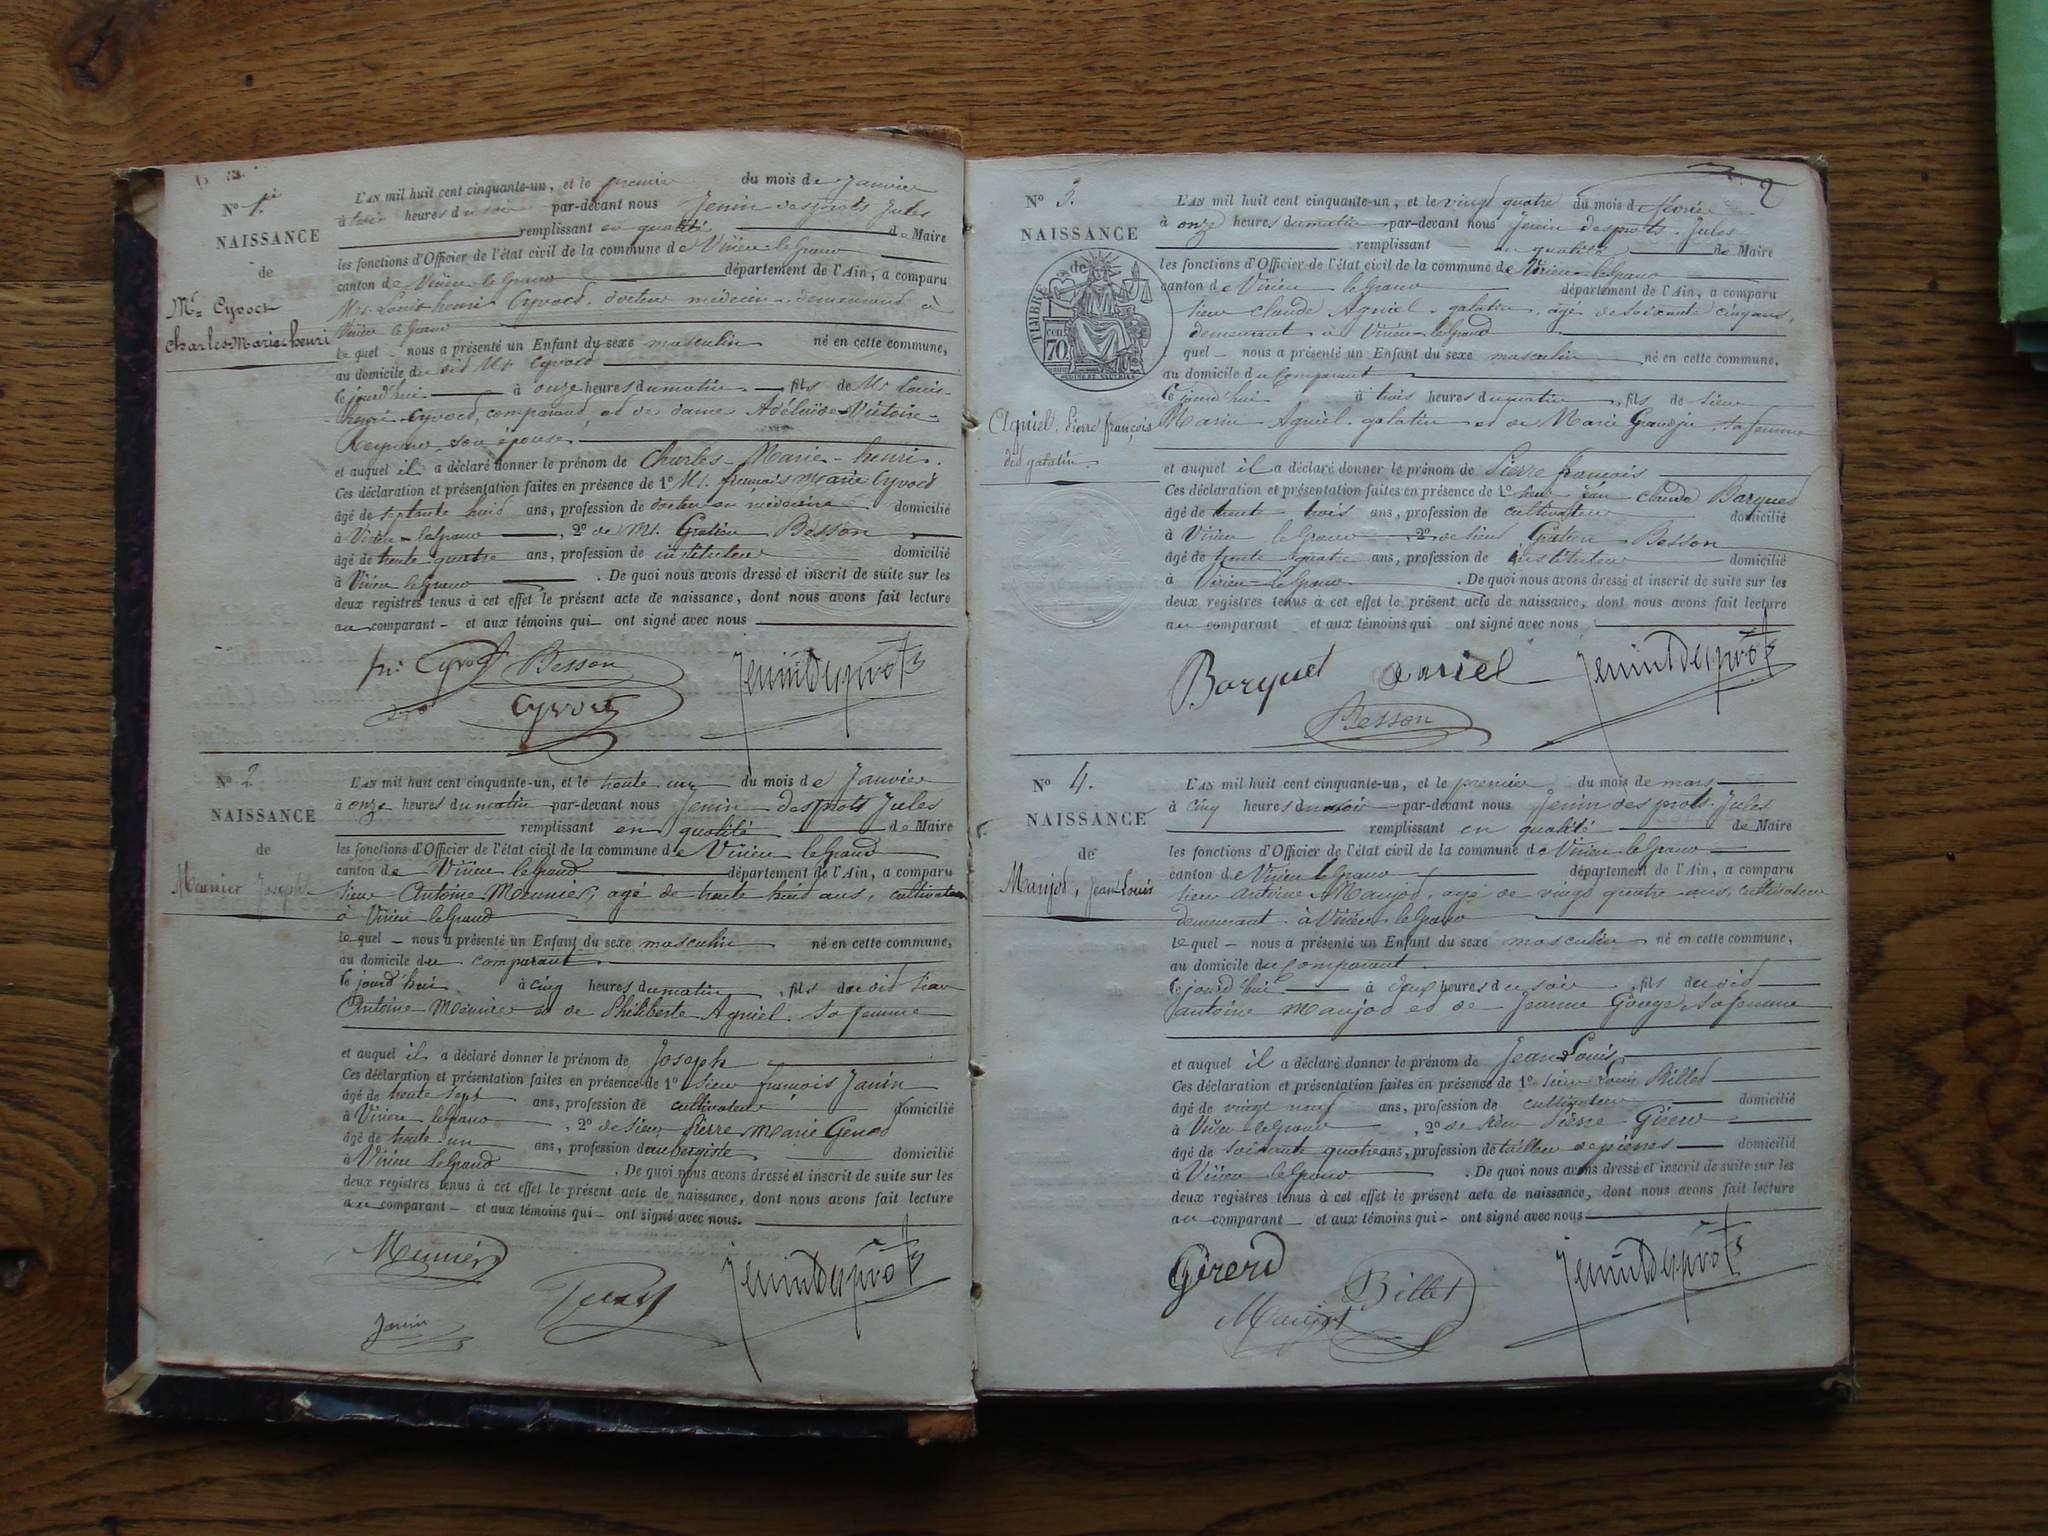 N° 1.
NAISSANCE
de
Mr Cyvoct
Charles-Marie-henri
L'AN mil huit cent cinquante-un, et le premier du mois de Janvier
à heures du soir par-devant nous Jenin desprots Jules
remplissant en qualité de Maire
les fonctions d'Officier de l'état civil de la commune de Virieu-le-Grand
canton de Virieu le Grand département de l'Ain, a comparu
Mr. Louis henri Cyvoct, docteur médecin, demeurant à
Virieu le Grand
le quel nous a présenté un Enfant du sexe masculin né en cette commune,
au domicile du dit Mr Cyvoct
le jourd'hui à onze heures du matin fils de Mr Louis-
henri Cyvoct, comparant, et de dame Adélaïde-Victoire-
son épouse
et auquel il a déclaré donner le prénom de Charles-Marie-henri.
Ces déclaration et présentation faites en présence de 1° Mr. françois Marie Cyvoct
âgé de septante huit ans, profession de docteur en médecine domicilié
à Virieu-le-Grand, 2° de Mr. Gratien Besson
âgé de trente quatre ans, profession de instituteur domicilié
à Virieu le Grand. De quoi nous avons dressé et inscrit de suite sur les
deux registres tenus à cet effet le présent acte de naissance, dont nous avons fait lecture
au comparant et aux témoins qui ont signé avec nous
Cyvoct Besson Jenindesprots
Cyvoct
N° 2.
NAISSANCE
de
Meunier Joseph
L'AN mil huit cent cinquante-un, et le trente un du mois de Janvier
à onze heures du matin par-devant nous Jenin desprots Jules
remplissant en qualité de Maire
les fonctions d'Officier de l'état civil de la commune de Virieu le Grand
canton de Virieu le Grand département de l'Ain, a comparu
Sieur Antoine Meunier, agé de trente huit ans, cultivateur
à Virieu le Grand
le quel nous a présenté un Enfant du sexe masculin né en cette commune,
au domicile du comparant
le jourd'hui à cinq heures du matin, fils du dit Sieur
Antoine Meunier et de Philiberte Agniel sa femme
et auquel il a déclaré donner le prénom de Joseph
Ces déclaration et présentation faites en présence de 1° Sieur françois Janin
âgé de trente sept ans, profession de cultivateur domicilié
à Virieu le Grand, 2° de Sieur Pierre Marie
âgé de trente un ans, profession de aubergiste domicilié
à Virieu le Grand. De quoi nous avons dressé et inscrit de suite sur les
deux registres tenus à cet effet le présent acte de naissance, dont nous avons fait lecture
au comparant et aux témoins qui ont signé avec nous.
Meunier Jenindesprots
Janin
2
N° 3.
NAISSANCE
de
TIMBRE
70 cen
Agniel, Pierre françois
dit galatin.
L'AN mil huit cent cinquante-un, et le vingt quatre du mois de février
à onze heures du matin par-devant nous Jenin desprots Jules
remplissant en qualité de Maire
les fonctions d'Officier de l'état civil de la commune de Virieu-le-Grand
canton de Virieu le Grand département de l'Ain, a comparu
Sieur Claude Agniel-galatin, agé de soixante cinq ans,
demeurant à Virieu-le-Grand
quel nous a présenté un Enfant du sexe masculin né en cette commune,
au domicile du comparant
le jourd'hui à trois heures du matin, fils de sieur
Marin Agniel-galatin et de Marie sa femme
et auquel il a déclaré donner le prénom de Pierre françois
Ces déclaration et présentation faites en présence de 1° Sieur Jean Claude Barquet
âgé de trente trois ans, profession de cultivateur domicilié
à Virieu le Grand, 2° de Sieur Gratien Besson
âgé de trente quatre ans, profession de instituteur domicilié
à Virieu-le-Grand. De quoi nous avons dressé et inscrit de suite sur les
deux registres tenus à cet effet le présent acte de naissance, dont nous avons fait lecture
au comparant et aux témoins qui ont signé avec nous
Barquet Jenindesprots
Besson
N° 4.
NAISSANCE
de
Maujot, Jean Louis
L'AN mil huit cent cinquante-un, et le premier du mois de mars
à cinq heures du soir par-devant nous Jenin desprots Jules
remplissant en qualité de Maire
les fonctions d'Officier de l'état civil de la commune de Virieu-le-Grand
canton de Virieu le Grand département de l'Ain, a comparu
Sieur Antoine Maujot, agé de vingt quatre ans, cultivateur
demeurant à Virieu-le-Grand
le quel nous a présenté un Enfant du sexe masculin né en cette commune,
au domicile du comparant
le jourd'hui à deux heures du soir, fils du dit
antoine Maujot et de Jeanne Gouge, sa femme
et auquel il a déclaré donner le prénom de Jean Louis
Ces déclaration et présentation faites en présence de 1° Sieur Louis Billet
âgé de vingt neuf ans, profession de cultivateur domicilié
à Virieu-le-Grand, 2° de Sieur Pierre Girerd
âgé de soixante quatre ans, profession de tailleur de pierres domicilié
à Virieu-le-Grand. De quoi nous avons dressé et inscrit de suite sur les
deux registres tenus à cet effet le présent acte de naissance, dont nous avons fait lecture
au comparant et aux témoins qui ont signé avec nous
Girerd Billet Jenindesprots
Maujot